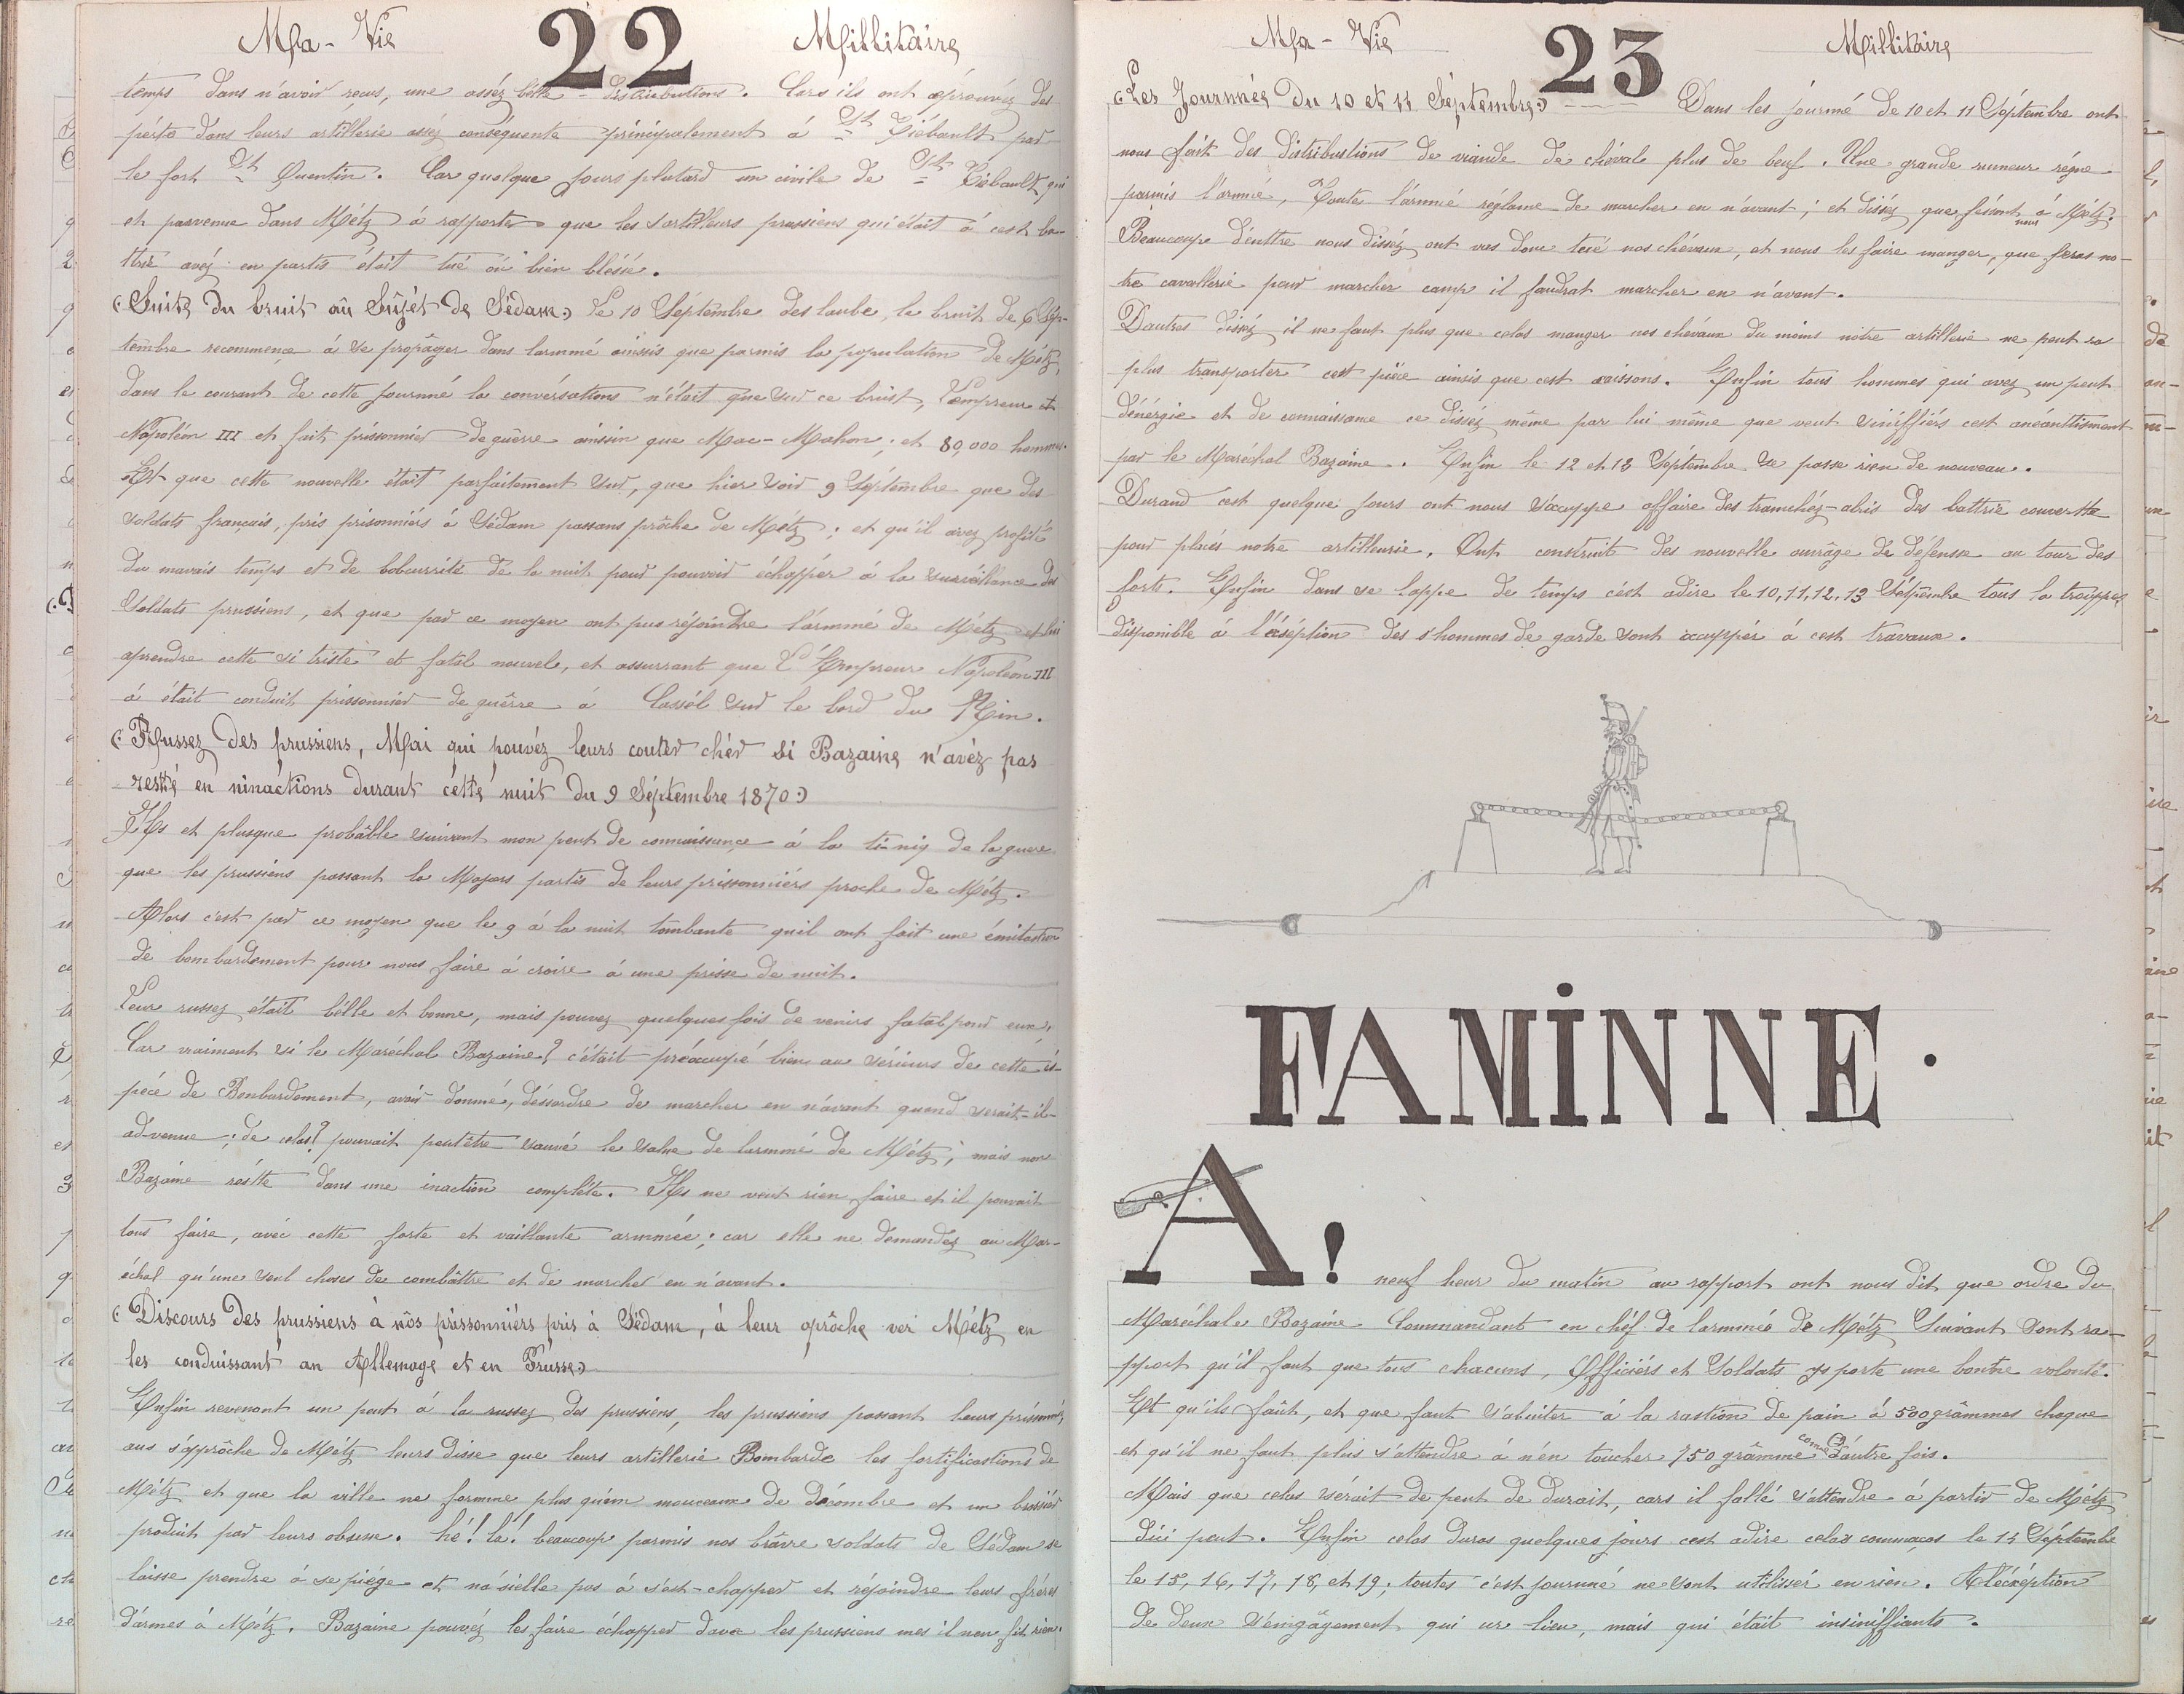 Ma - Vie 22 Millitaire
temps dans n'avoir reçus, une assèz belle distributions. Cars ils ont éprouvéz des
pérte dans leurs artillerie assèz conséquente principalement á St Tiébault par
le fort St Quentin. Car quelque jours plutard un civile de St Tiébault qui
et parvenue dans Métz á rapporter que les s'artilleurs prussiens qui était á cest ba-
ttrie avéz en partis était tué óu bien bléssé.
(Suite du bruit aû Sujét de Sédam) Le 10 Séptembre des laube, le bruit de 6 Sép-
tembre recommence á se propâger dans larmmé ainssis que parmis la population de Métz,
dans le courant de cette journné la convérsations n'était que sur ce bruit, L'empreur et
Napoléon III et fait prisonnier de guêrre ainssin que Mac-Mahon; et 80,000 hommes.
Et que cette nouvelle était parfaitement sur, que hier soir 9 Séptembre que des
soldats français, pris prisonniérs á Sédam passans prôche de Métz; et qu'il avez profité
du mavais temps et de lobcurrité de la nuit pour pouvoir échappér á la surveillance des
soldats prussiens, et que par ce moyen ont pus réjoindre l'armmé de Métz et lui
aprendre cette si triste et fatal nouvele, et assurrant que L'Empreur Napoléon III
á était conduit prissonnier de guêrre á Cassél sur le bord du Rin.
(Russez des prussiens, Mai qui pouvéz leurs couter chér si Bazaine n'avéz pas
restté en ninactions durant cétté nuit du 9 Séptembre 1870)
Ils et plusque probâble suivant mon peut de connaissance á la ti-niq de laguere
que les prussiens passant la Majors partis de leurs prissonniérs proche de Métz.
Alors c'est par ce moyen que le 9 á la nuit tombante quil ont fait une émitastion
de bombardement pour nous faire á croire á une prisse de nuit.
Leur russez était bélle et bonne, mais pouvez quelques fois de venirs fatal pour eux,
Car vraiment si le Maréchal Bazaine? c'était préoccupé bien au sérieurs de cette és-
péce de Bonbardement, avoir donné, déssordre de marcher en n'avant quand serait-il-
ad-venue; de celas? pouvait peutêtre sauvé le salue de larmmé de Métz; mais non
Bazaine réstte dans une inaction compléte. Ils ne veut rien faire et il pouvait
tout faire, avéc cette forte et vaillante armmée; car elle ne demandez au Mar-
échal qu'une seul choses de combâttre et de marcher en n'avant.
(Discours des prussiens à nôs prissonniérs pris à Sédam, à leur aprôche ver Métz en
les conduissant an Allemage et en Prusse)
Enfin revenont un peut á la russez des prussiens, les prussiens passant leurs prisonniés
aus s'apprôche de Métz leurs disse que leurs artillerie Bombarde les fortificastions de
Métz et que la ville ne formme plus qu'un monceaux de décombre et un brasiér
produit par leurs obusse. hé! la! beaucoup parmis nos brâvre soldats de Sédam se
laisse prendre á se piége et n'ésielle pas á s'est-chapper et réjoindre leurs fréres
d'armes á Métz. Bazaine pouvéz les faire échapper davec les prussiens mes il nen fit rien.
Ma - Vie 23 Millitaire
(Les Journnée du 10 et 11 Séptembre) Dans les journé de 10 et 11 Séptembre ont
nous fait des distribustions de viande de chéval plus de beuf. Une grande rumeur régne
parmis l'armmé, Toute l'armmé réglame de marcher en n'avant; et disséz que fésont nous á Métz.
Beaucoup d'enttre nous disséz ont vas donc tué nos chévaux, et nous les faire manger, que feras no-
tre cavallerie pour marcher camp il faudrat marcher en n'avant.
D'autres disséz il ne faut plus que celas manger nos chévaux du moins nôtre artillerie ne peut sa
plus transporter cest piéce ainsis que cest caissons. Enfin tous hommes qui avez un peut
d'énérgie et de connaissance ce disséz même par lui même que veut siniffiérs cest anéanttisment
par le Maréchal Bazaine. Enfin le 12 et 13 Séptembre se passe rien de nouveau.
Durand cest quelque jours ont nous s'ocuppe affaire des tranchéz-abris des battrie couvertte
pour placés notre artilleurie. Ont construit des nouvelle ouvrâge de défensse au tour des
forts. Enfin dans se lappe de temps c'ést adire le 10, 11, 12, 13 Sétpembre tous la trouppes
disponible á l'éxséption des s'hommes de garde sont occuppér á cest travaux.
FAMINNE.
A! neuf heur du matin au rapport ont nous dit que ordre du
Maréchale Bazaine Commandant en chéf de larmmée de Métz Suivant sont ra-
pport qu'il faut que tous chacuns, Officiérs et Soldats ys porte une bontne volonté.
Et qu'ils faût, et que faut s'abuiter á la rastion de pain á 500 grâmmes chaque
et qu'il ne faut plus s'attendre á n'en toucher 750 grâmme comme d'autre fois.
Mais que celas sérait de peut de durait, cars il fallé s'attendre á partir de Métz
d'ici peut. Enfin celas duras quelques jours cest adire celas commaças le 14 Séptembre
le 15, 16, 17, 18, et 19; toutes c'est journné ne sont utilissér en rien. Al'écxéption
de deux s'éngâgement qui ur lieu, mais qui était insiniffiants.